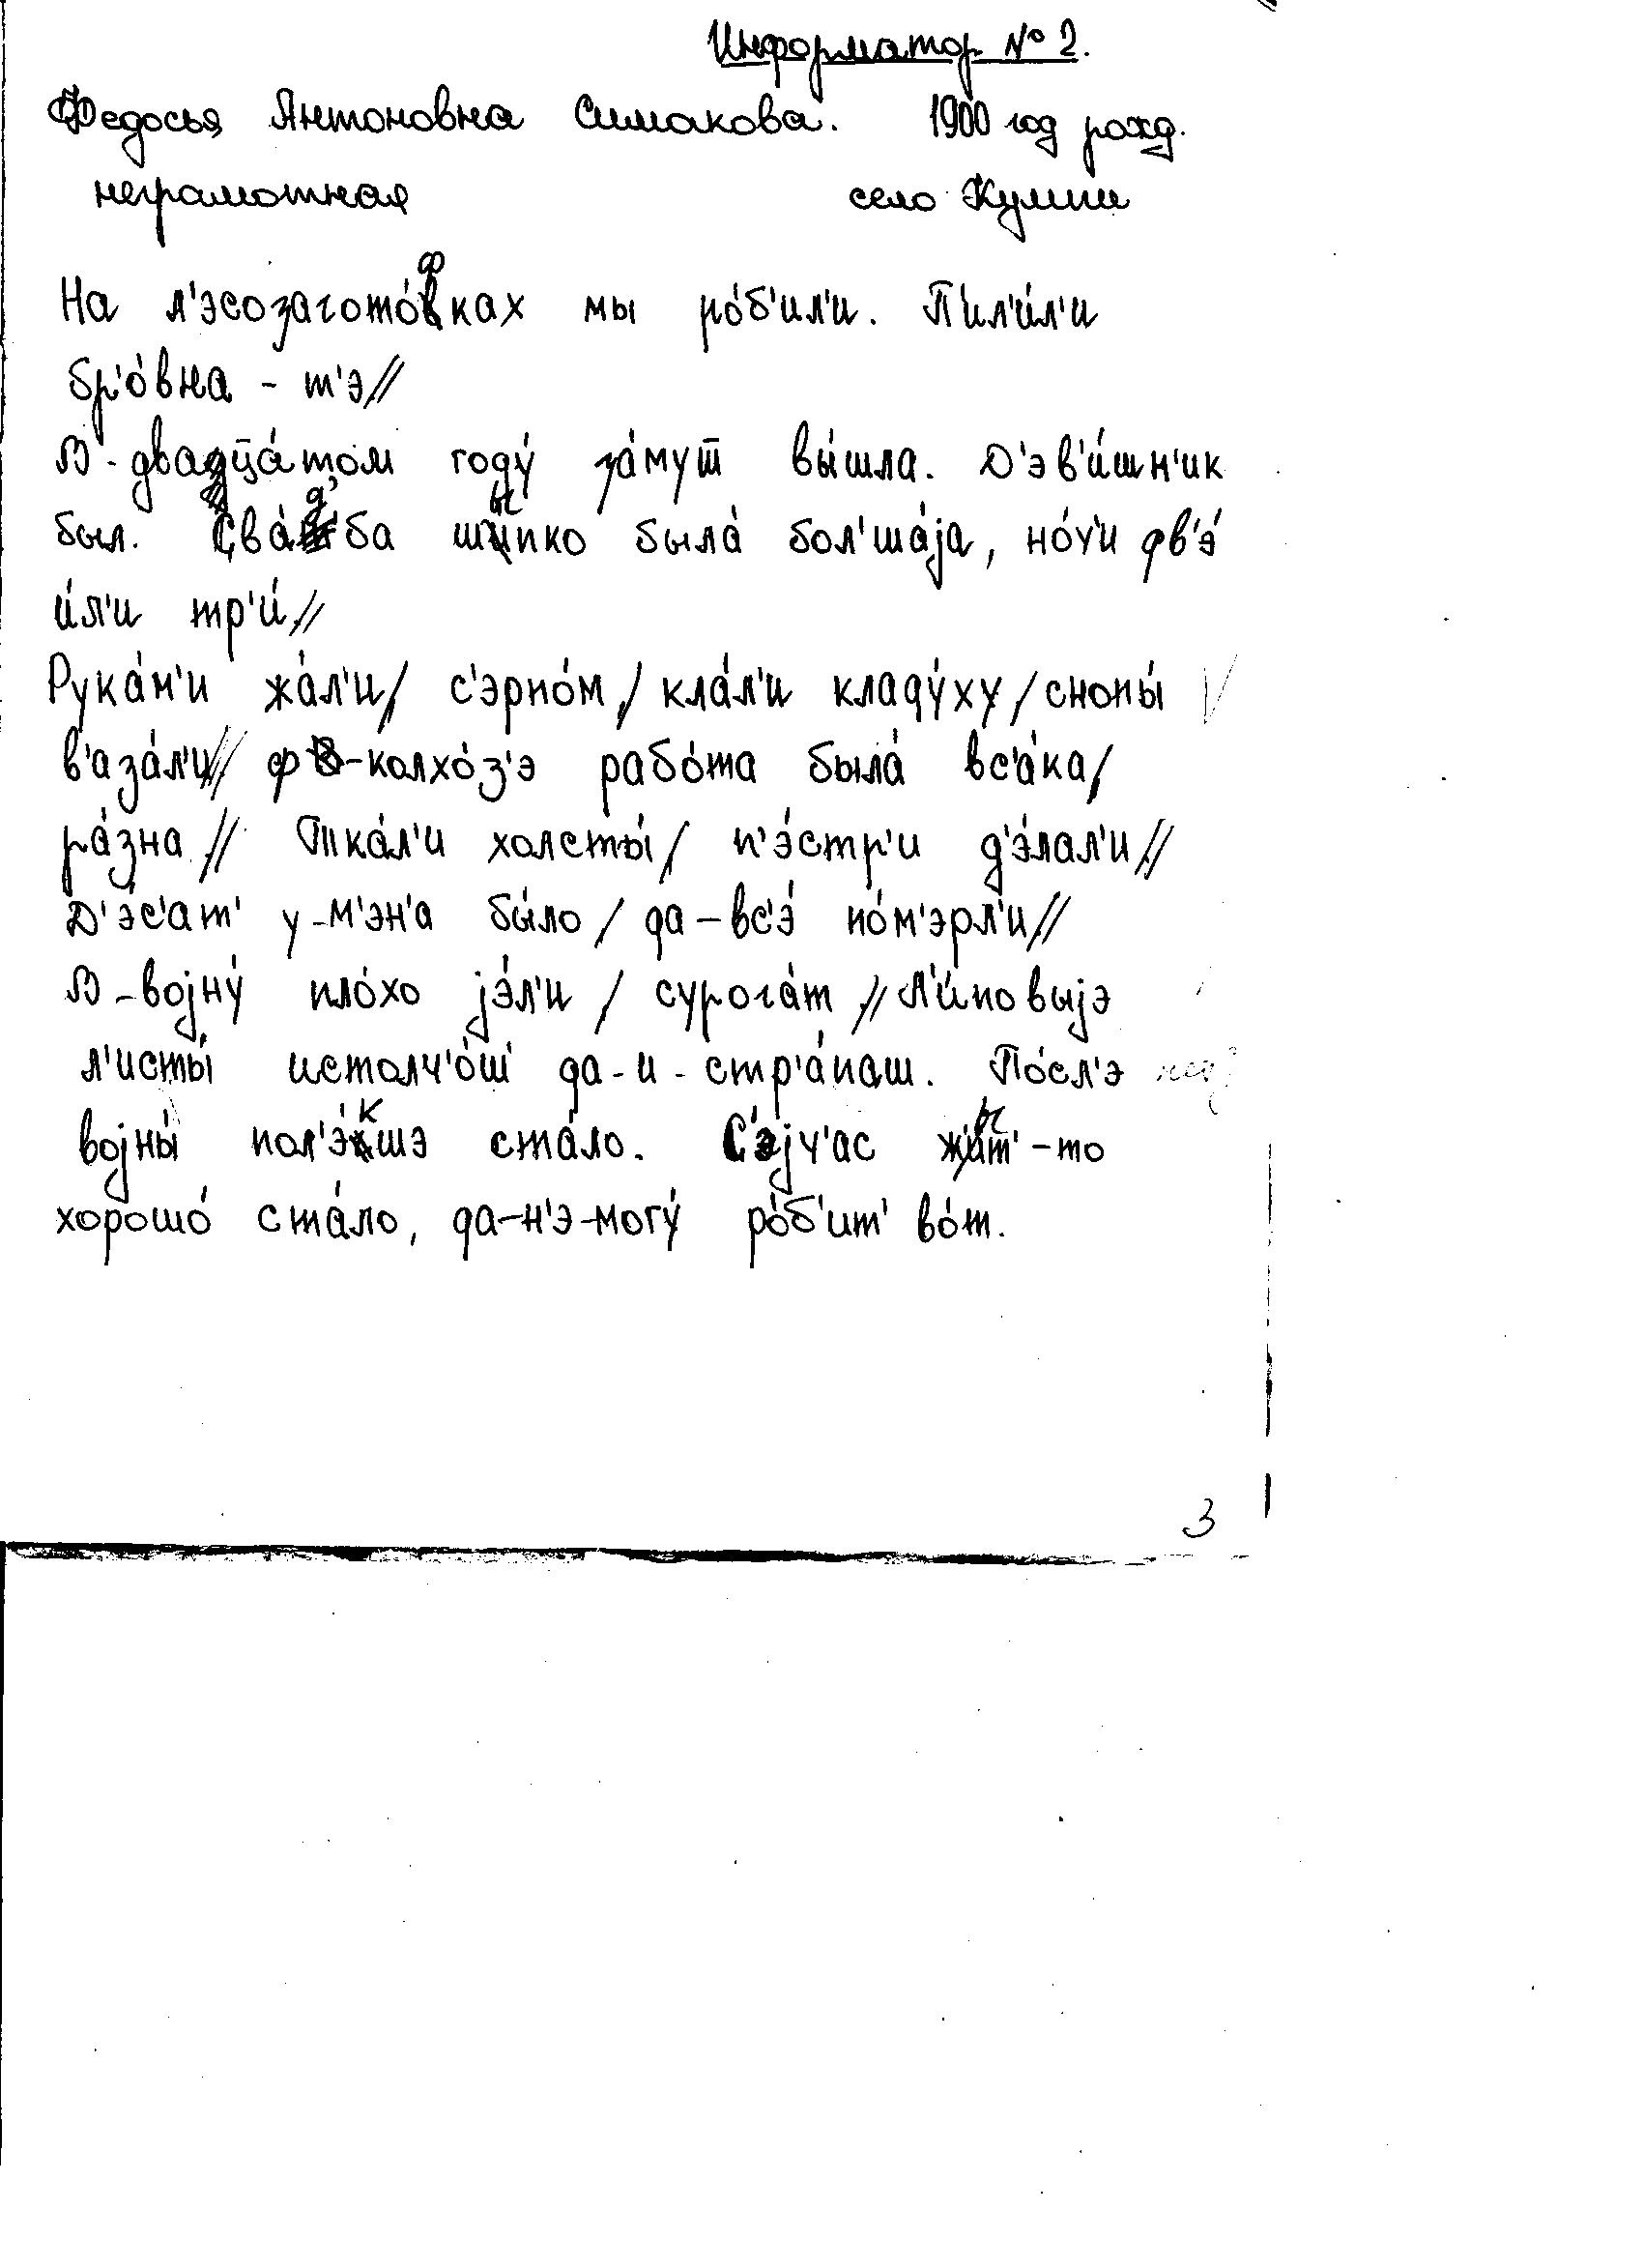 Информатор № 2.
Федосья Антоновна Симакова. 1900 год рожд.
неграмотная село Кулики
На л'эсозагото́фках мы ро́б'ил'и. П'ил'и́л'и
бр'о́вна - т'э//
В-двацца́том году́ за́мут вы́шла. Д'эв'и́шн'ик
был. Сва́д'ба шыпко была́ бол'ша́jа, но́ч'и дв'э́
и́л'и тр'и́//
Рука́м'и жа́л'и/ с'эрпо́м/ кла́л'и кладу́ху/ снопы́
в'аза́л'и// ф-колхо́з'э рабо́та была́ вс'а́ка/
ра́зна// Тка́л'и холсты́/ п'э́стр'и д'э́лал'и//
Д'э́с'ат' у-м'эн'а бы́ло/ да-вс'э́ по́м'эрл'и//
В-воjну́ пло́хо jэ́л'и/ сурога́т// Л'и́повыjэ
л'исты́ истолч'о́ш да-и-стр'а́паш. По́сл'э
воjны́ пол'э́кшэ ста́ло. С'эjч'ас жыт'-то
хорошо́ ста́ло, да-н'э-могу́ ро́б'ит' во́т.
3